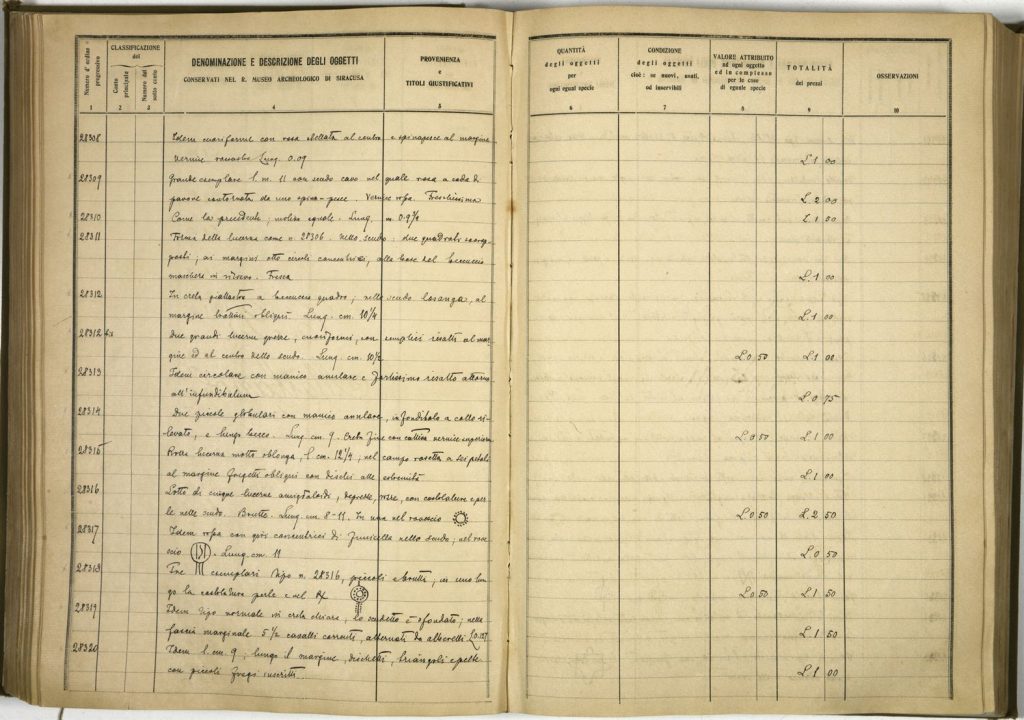 Numero d'ordine progressivo
CLASSIFICAZIONE
del
Conto principale
Numero del sotto conto
DENOMINAZIONE E DESCRIZIONE DEGLI OGGETTI
CONSERVATI NEL R. MUSEO ARCHEOLOGICO DI SIRACUSA
PROVENIENZA
e
TITOLI GIUSTIFICATIVI
QUANTITÀ
degli oggetti
per
ogni eguale specie
CONDIZIONE
degli oggetti
cioè: se nuovi, usati,
od inservibili
VALORE ATTRIBUITO
ad ogni oggetto
ed in complesso
per le cose
di eguale specie
TOTALITÀ
dei prezzi
OSSERVAZIONI
1 2 3 4 5 6 7 8 9 10
28308 Idem cuoriforme con rosa al centro e spinapesce al margine
vernice rossastra Lung. 0.09 L. 1 00
28309 Grande esemplare l. m. 11 con scudo cavo nel quale rosa a coda di
pavone contornata da uno spina-pesce. Vernice rossa. Freschissima L. 2 00
28310 Come la precedente; molto eguale. Lung. m. 0.9 1/2 L. 1 50
28311 Forma della lucerna come n. 28306. Nello scudo: due quadrati sovrap-
posti; ai margini otto circoli concentrici, alla base del beccuccio
maschera in rilievo. Fresca L. 1 00
28312 In creta giallastra a beccuccio quadro; nello scudo losanga, al
margine obliqui. Lung. cm. 10 1/4 L. 1 00
28312 Due grandi lucerne grezze, cuoriformi, con semplici risalti al mar-
gine ed al centro dello scudo. Lung. cm. 10 1/2 L. 0 50 L. 1 00
28313 Idem circolare con manico anulare e fortissimo risalto attorno
all'infundibulum L. 0 75
28314 Due piccole globulari con manico anulare, infondibolo a collo ri-
levato, e lungo becco. Lung. cm. 9. Creta fine con cattiva vernice L. 0 50 L. 1 00
28315 Rozza lucerna molto oblonga, l. cm. 12 1/4; nel campo rosetta a sei petali
al margine obliqui con dischi alle estremità L. 1 00
28316 Lotto di cinque lucerne amigdaloidi, depresse, rozze, con costolature e per-
le nello scudo. Brutte. Lung. cm. 8-11. In una nel rovescio L. 0 50 L. 2 50
28317 Idem rossa con giri concentrici di funicella nello scudo; nel rove-
scio. Lung. cm. 11 L. 0 50
28318 Tre esemplari tipo n. 28316, piccoli e brutti; in uno lun-
go la costolatura perle e nel L. 0 50 L. 1 50
28319 Idem tipo normale in creta chiara, lo scudetto è sfondato; nella
fascia marginale 5 1/2 cavalli correnti, alternati da alberelli L. 1 50
28320 Idem l. cm. 9; lungo il margine, dischetti, triangoli e pelte
con piccoli fregi inscritti. L. 1 00